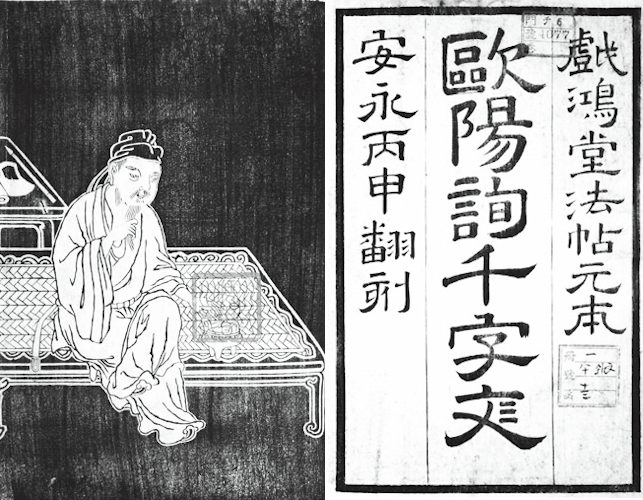 戱鴻堂法帖元本
歐陽詢千字文
安永丙申翻刻
4077